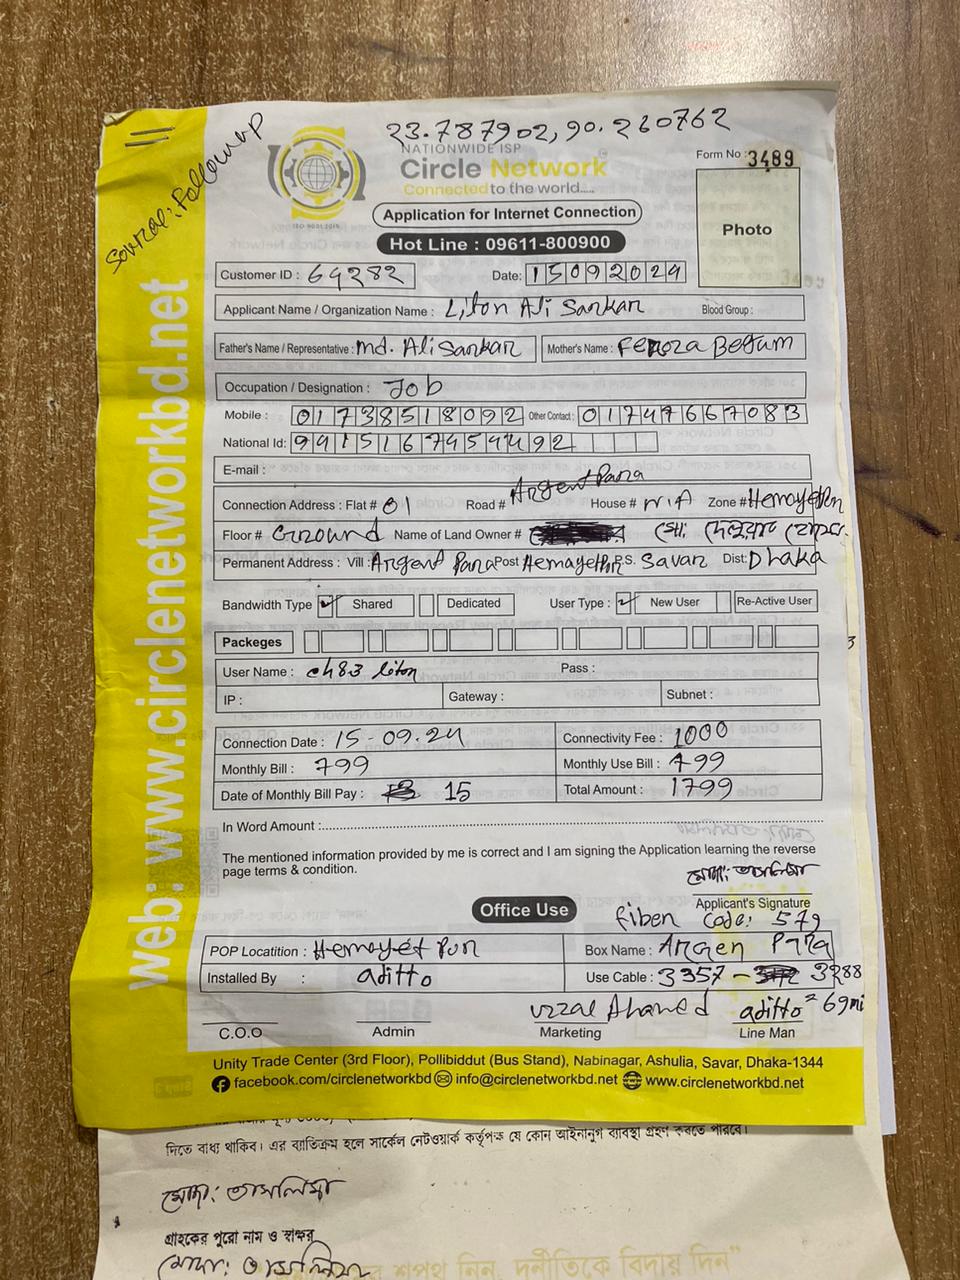 23.787902, 90.260762
Source: Followup
NATIONWIDE ISP
Circle Network
Connected to the world.....
ISO 9001:2015
Form No : 3489
Photo
Application for Internet Connection
Hot Line : 09611-800900
Customer ID : 64282 Date: 15092024
Applicant Name / Organization Name : Liton Ali Sarkar Blood Group :
Father's Name / Representative : Md. Ali Sarkar Mother's Name : Feroza Begum
Occupation / Designation : Job
Mobile : 01738518092 Other Contact : 01747667083
National Id:
E-mail :
Connection Address : Flat # 01 Road # Argent Para House # N/A Zone # Hemayetpur
Floor # Ground Name of Land Owner # মো:
Permanent Address : Vill : Argent Para Post Hemayetpur P.S. Savar Dist: Dhaka
Bandwidth Type ✓ Shared Dedicated User Type : ✓ New User Re-Active User
Packeges
User Name : ch83 liton Pass :
IP : Gateway : Subnet :
Connection Date : 15-09.24 Connectivity Fee : 1000
Monthly Bill : 799 Monthly Use Bill : 799
Date of Monthly Bill Pay : 15 Total Amount : 1799
In Word Amount :
The mentioned information provided by me is correct and I am signing the Application learning the reverse
page terms & condition.
মোছা: তাসলিমা
Applicant's Signature
Office Use
fiber code: 579
POP Locatition : Hemayet Pur Box Name : Argen Para
Installed By : aditto Use Cable : 3357 - 3288
= 69mi
C.O.O Admin Uzzal Ahamed Marketing aditto Line Man
Unity Trade Center (3rd Floor), Pollibiddut (Bus Stand), Nabinagar, Ashulia, Savar, Dhaka-1344
facebook.com/circlenetworkbd info@circlenetworkbd.net www.circlenetworkbd.net
web: www.circlenetworkbd.net
দিতে বাধ্য থাকিব। এর ব্যতিক্রম হলে সার্কেল নেটওয়ার্ক কর্তৃপক্ষ যে কোন আইনানুগ ব্যাবস্থা গ্রহণ করতে পারবে।
মোছা: তাসলিমা
গ্রাহকের পুরো নাম ও স্বাক্ষর
মোছা: তাসলিমা
শপথ নিন, দুর্নীতিকে বিদায় দিন"